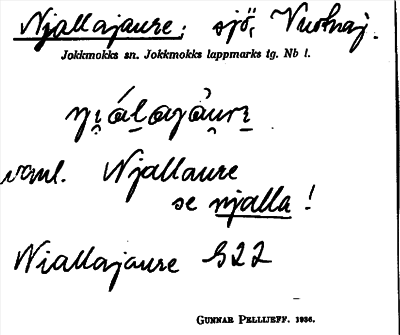 Njallajaure; sjö, Vuotnaj.
Jokkmokks sn. Jokkmokks lappmarks tg. Nb l.
vanl. Njallaure
se njalla!
Niallajaure S22
GUNNAR PELLIJEFF. 1936.